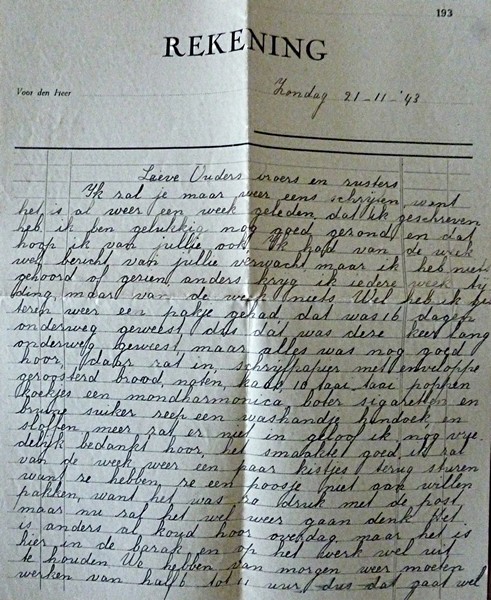 193
REKENING
Voor den Heer
Zondag 21-11-'43
Lieve Ouders broers en zusters
Ik zal je maar weer eens schrijven want
het is al weer een week geleden dat ik geschreven
heb ik ben gelukkig nog goed gezond en dat
hoop ik van jullie ook. Ik had van de week
wel bericht van jullie verwacht maar ik heb niets
gehoord of gezien anders kryg ik iedere week ty
ding maar van de week niets Wel heb ik gis
teren weer een pakje gehad dat was 16 dagen
onderweg geweest dus dat was deze keer lang
onderweg geweest, maar alles was nog goed
hoor, daar zat in, schryfpapier met enveloppe
geroosterd brood, noten, kaas 10 taai-taai poppen
koekjes een mondharmonica boter sigaretten en
bruine suiker reep een washandje handoek, en
sloffen, meer zat er niet in geloof ik nog vrie
delyk bedankt hoor, het smaakte goed, ik zal
van de week weer een paar kistjes terug sturen
want ze hebben ze een poosje niet aan willen
pakken, want het was zo druk met de post
maar nu zal het wel weer gaan denk Het
is anders al koud hoor overdag maar het is
hier in de barak en op het werk wel uit
te houden We hebben van morgen weer moeten
werken van half 6 tot 11 uur dus dat gaat wel